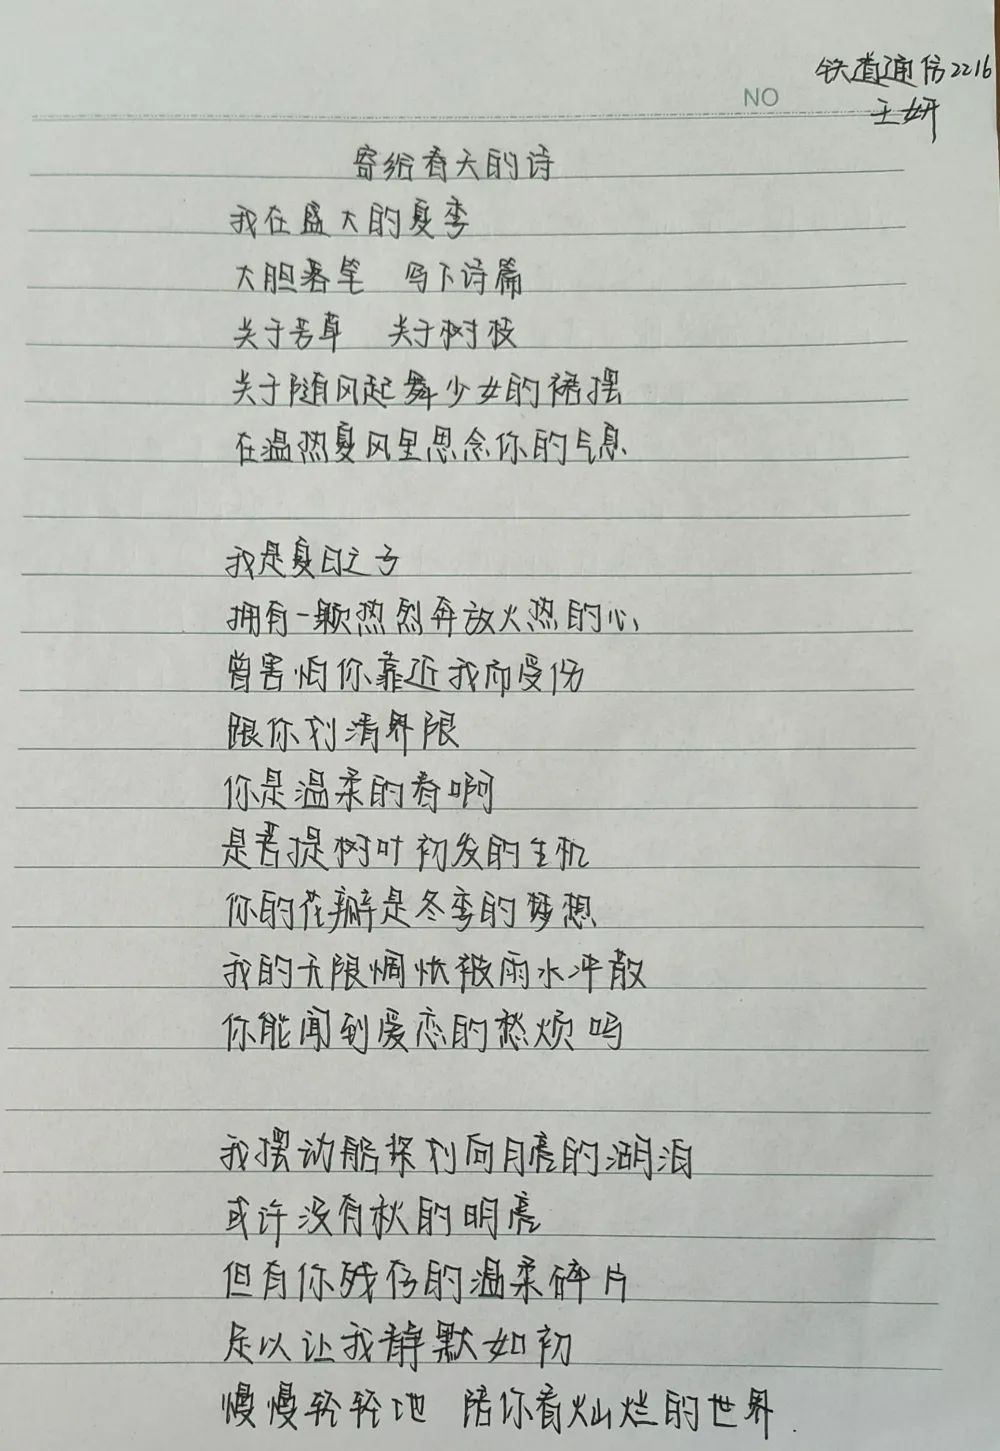 铁道通信2216
王妍
NO
寄给春天的诗
我在盛大的夏季
大胆著笔 写下诗篇
关于芳草 关于树枝
关于随风起舞少女的裙摆
在温热夏风里思念你的气息
我是夏日之子
拥有一颗热烈奔放火热的心
曾害怕你靠近我而受伤
跟你划清界限
你是温柔的春啊
是菩提树叶初发的生机
你的花瓣是冬季的梦想
我的无限惆怅被雨水冲散
你能闻到爱恋的愁烦吗
我摆动船桨划向月亮的湖泊
或许没有秋的明亮
但有你残存的温柔碎片
足以让我静默如初
慢慢轻轻地 陪你看灿烂的世界.